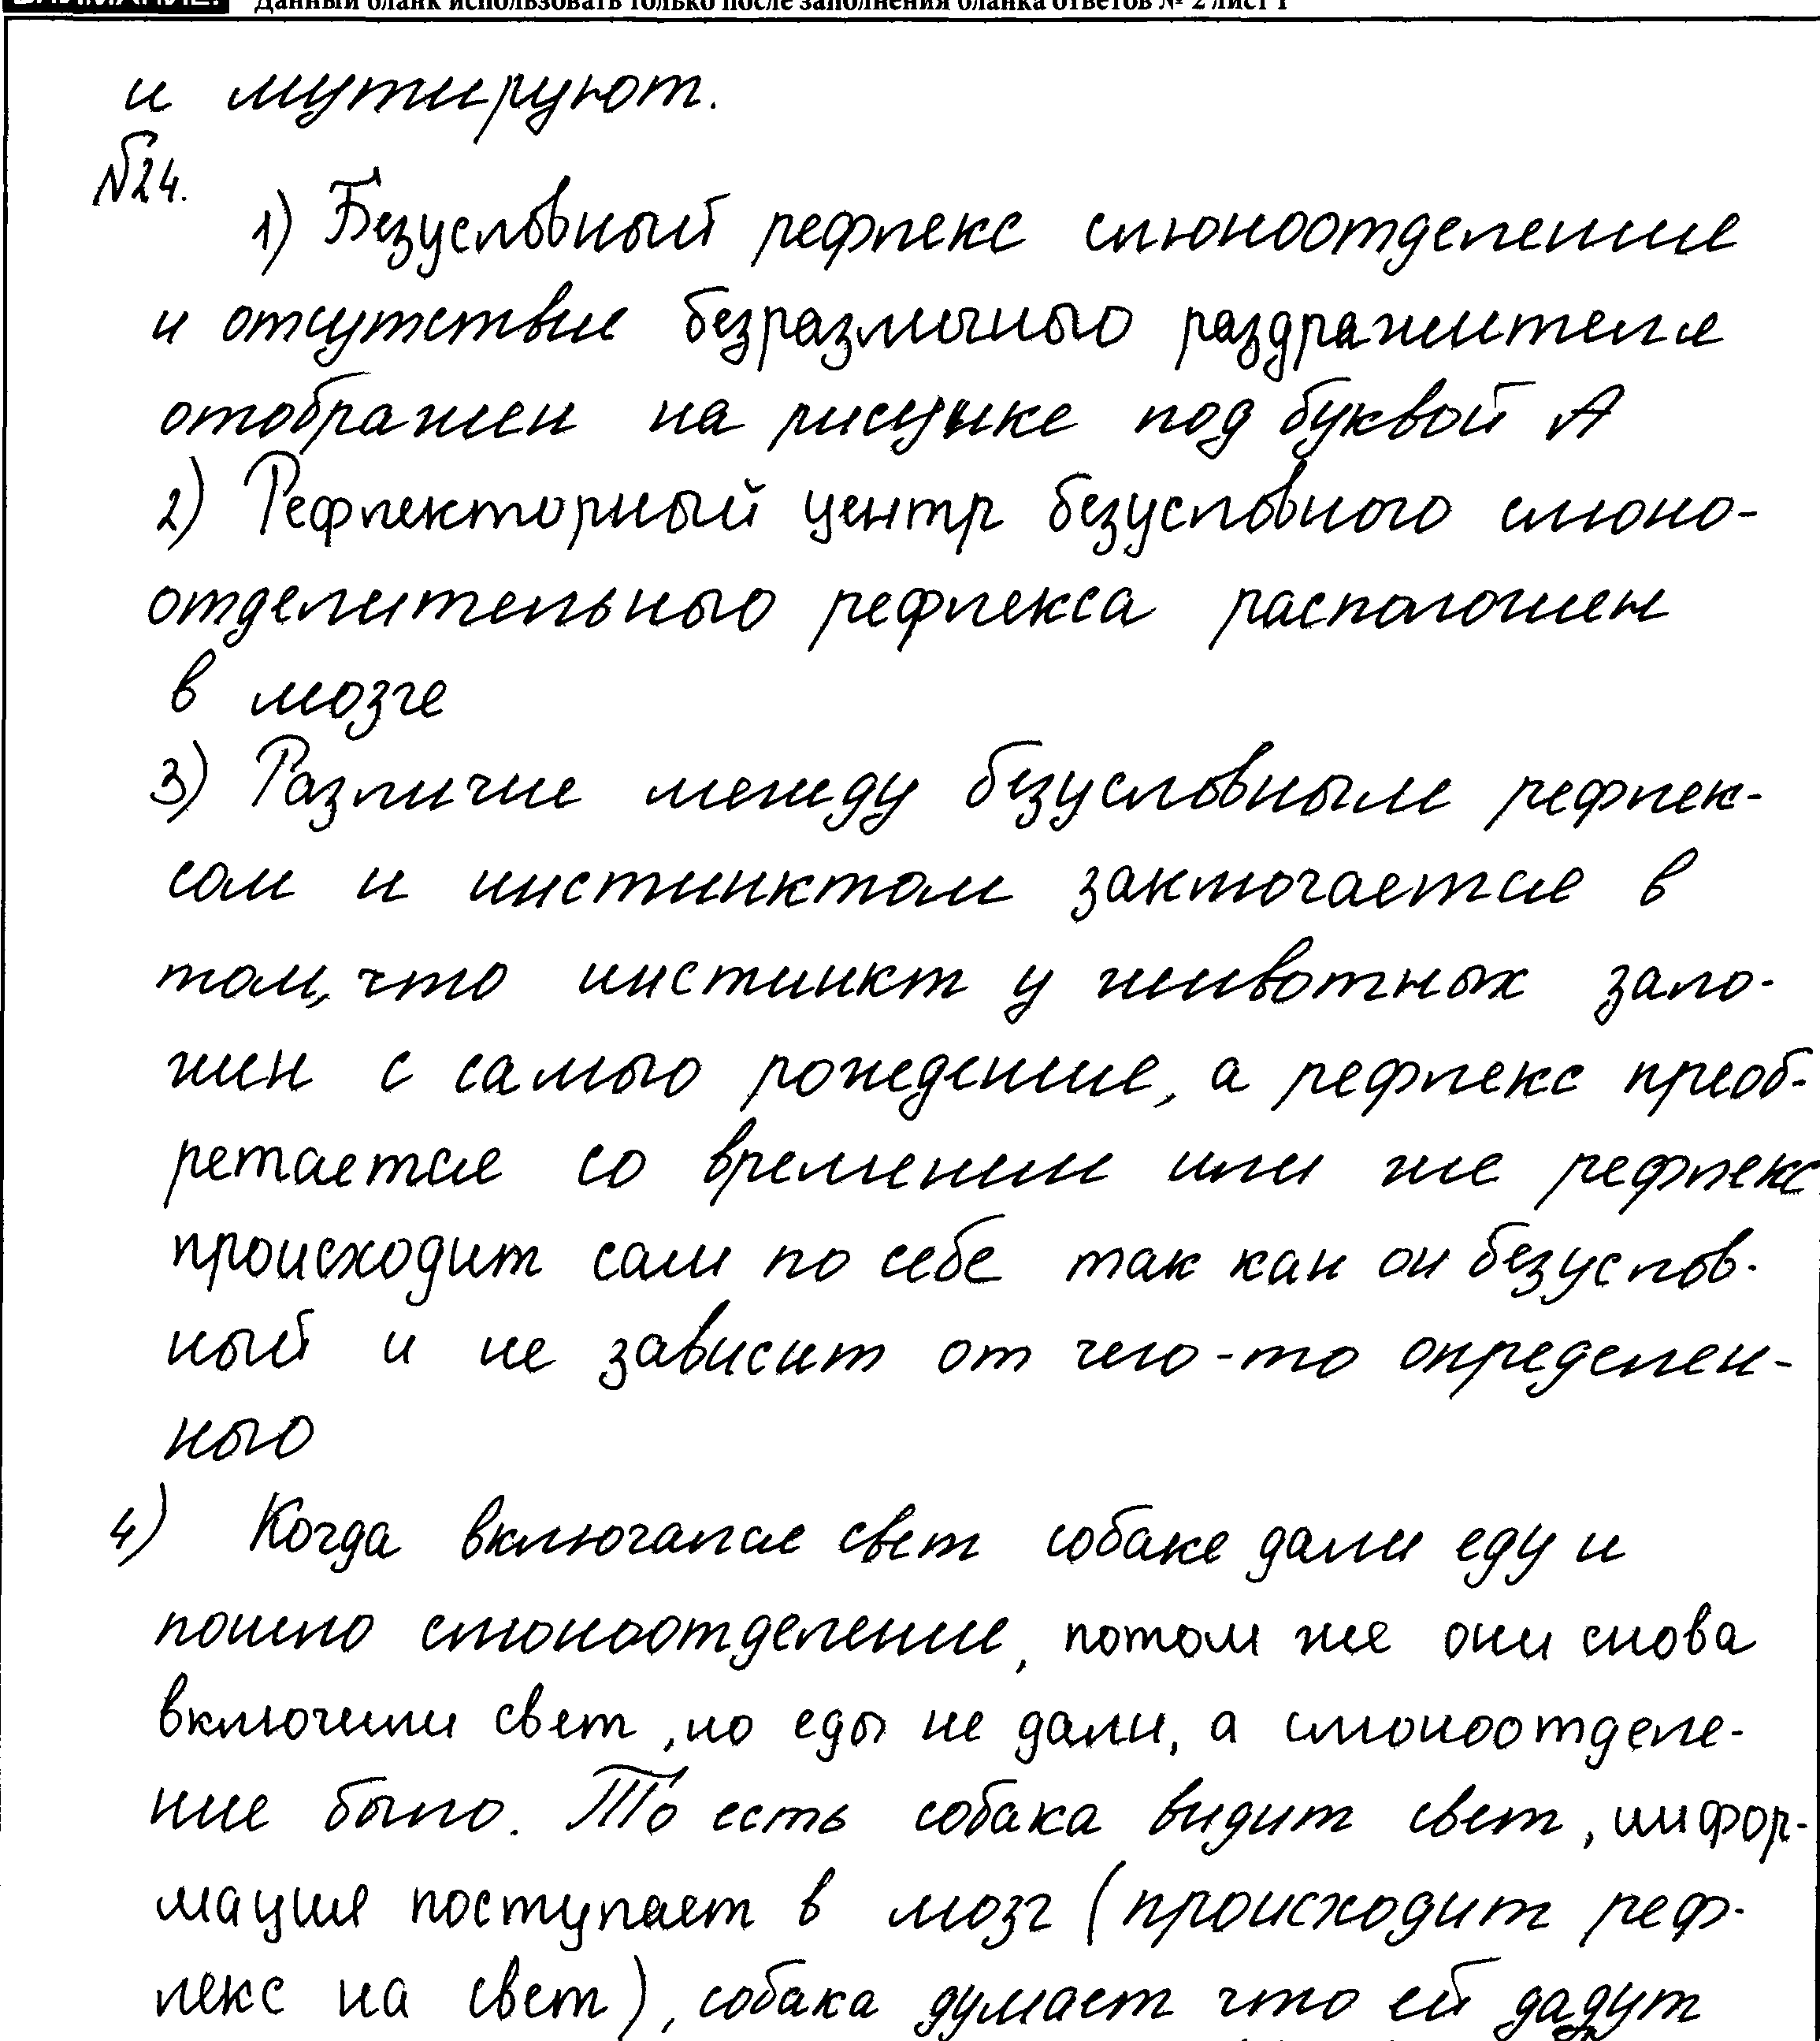 Данный бланк использовать только после заполнения бланка ответов № 2 лист 1
и мутируют.
№24.
1) Безусловный рефлекс слюноотделение
и отсутствие безразличного раздражителя
отображен на рисунке под буквой А
2) Рефлекторный центр безусловного слюно-
отделительного рефлекса расположен
в мозге
3) Различие между безусловным рефлек-
сом и инстинктом заключается в
том, что инстинкт у животных зало-
жен с самого рождение, а рефлекс преоб-
ретается со времением или же рефлекс
происходит сам по себе так как он безуслов-
ный и не зависит от чего-то определен-
ного
4) Когда включался свет собаке дали еду и
пошло слюноотделение, потом же они снова
включили свет, но еды не дали, а слюноотделе-
ние было. То есть собака видит свет, инфор-
мация поступает в мозг (происходит реф-
лекс на свет), собака думает что ей дадут